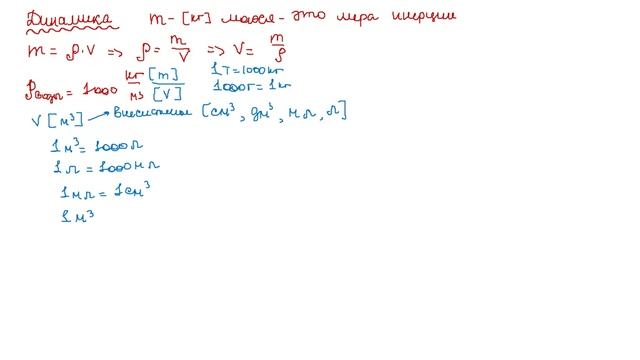 Динамика m - [кг] масса - это мера инерции
m = ρ·V => ρ = m/V => V = m/ρ
ρводы = 1000 кг/м³ [m]/[V] 1т = 1000кг
1000г = 1кг
V [м³] → Внесистемные [см³, дм³, мл, л]
1м³ = 1000л
1л = 1000мл
1мл = 1см³
1м³